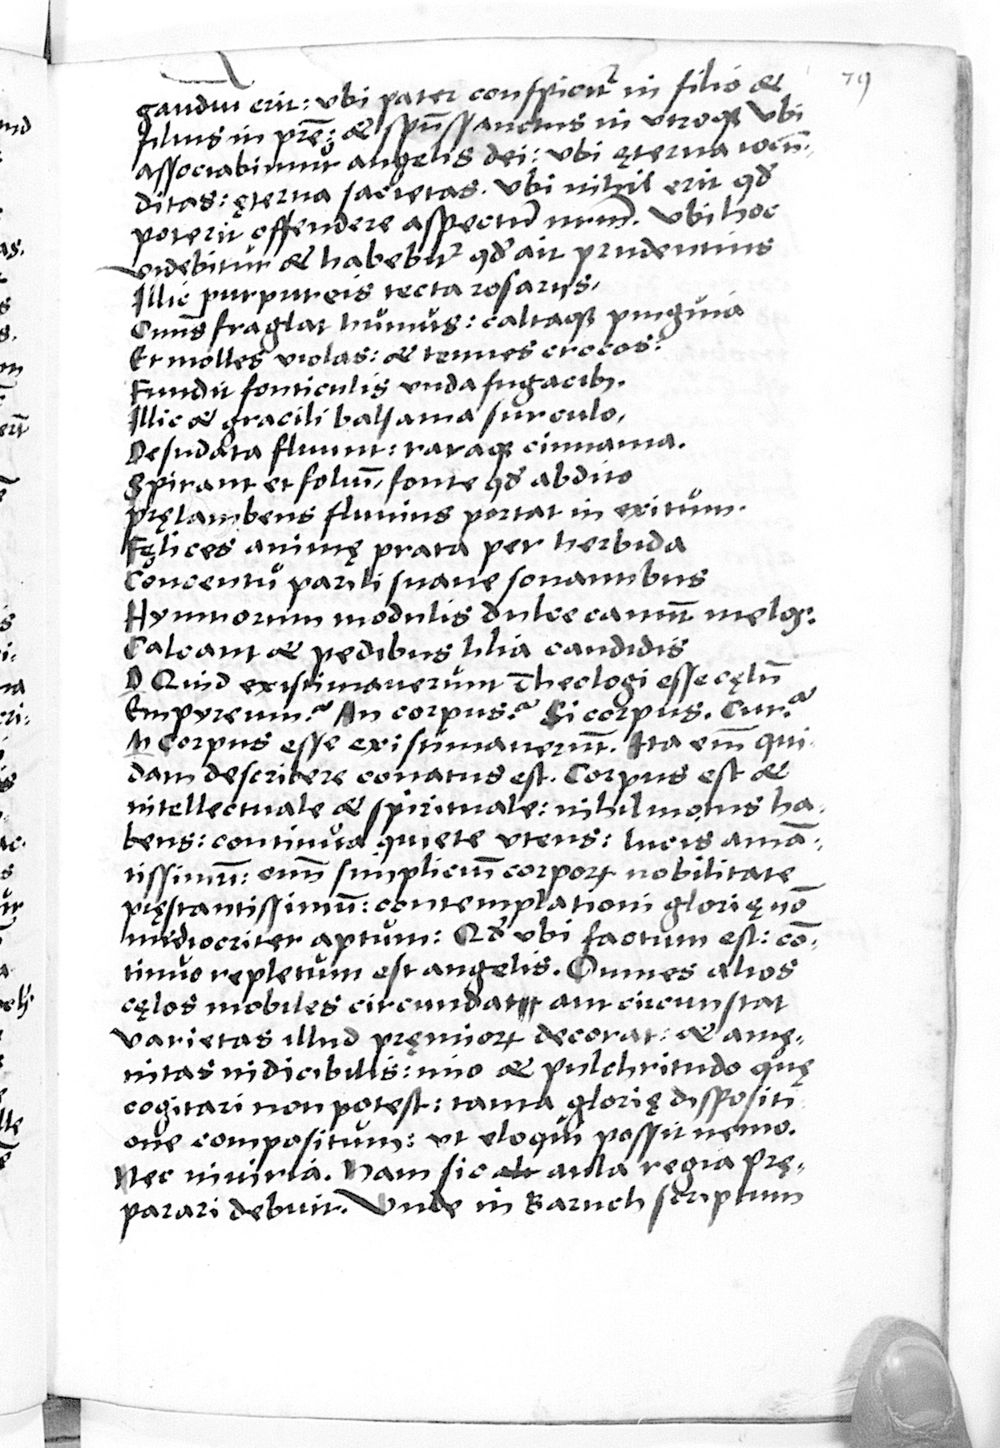 79
gaudiū erit: vbi pater conspicit᷑ in filio &
filius in pr̄e: & sp̄ussanctus in vtroqꝫ Vbi
associabimur angelis dei: vbi ęterna iocū-
ditas: ęterna sacietas. Vbi nihil erit qđ
poterit offendere aspectū nrm̄. Vbi hoc
videbitur & habebit᷑ qđ ait prudentius
Illic purpureis tecta rosariis,
Omīs fraglat humus: caltaqꝫ pinguia
Et molles violas: & tenues crocos:
Fundit fonticulis vnda fugacibꝫ.
Illic & gracili balsama surculo,
Desudata fluunt: raraqꝫ cinnama.
Spirant et foliū, fonte qđ abdito
pręlambens fluuius portat in exitum.
Fęlices animę prata per herbida
Concentu parili suaue sonantibus
Hymnorum modulis dulce canunt melos:
Calcant & pedibus lilia candidis
D Quid existimauerunt Theologi esse cęlū
Empyreum? An corpus? Si corpus. Cur?
M Corpus esse existimauerūt. Ita em̄ qui-
dam describere conatus est. Corpus est &
intellectuale & spirituale: nihil motus ha-
bens: continua quiete vtens: lucis amā-
tissimū: om̄ simpliciū corporꝝ nobilitate
pręstantissimū: contemplationi glorię nō
mediocriter aptum: Qđ vbi factum est: cō-
tinuo repletum est angelis. Omnes alios
cęlos mobiles circundat aut circunstat
varietas illud pręmiorꝝ decorat: & amę-
nitas indicibilis: imo & pulchritudo quę
cogitari non potest: tanta glorię dispositi
one compositum: vt eloqui possit nemo.
Nec iniuria. Nam sic aula regia prę-
parari debuit. Vnde in Baruch scriptum